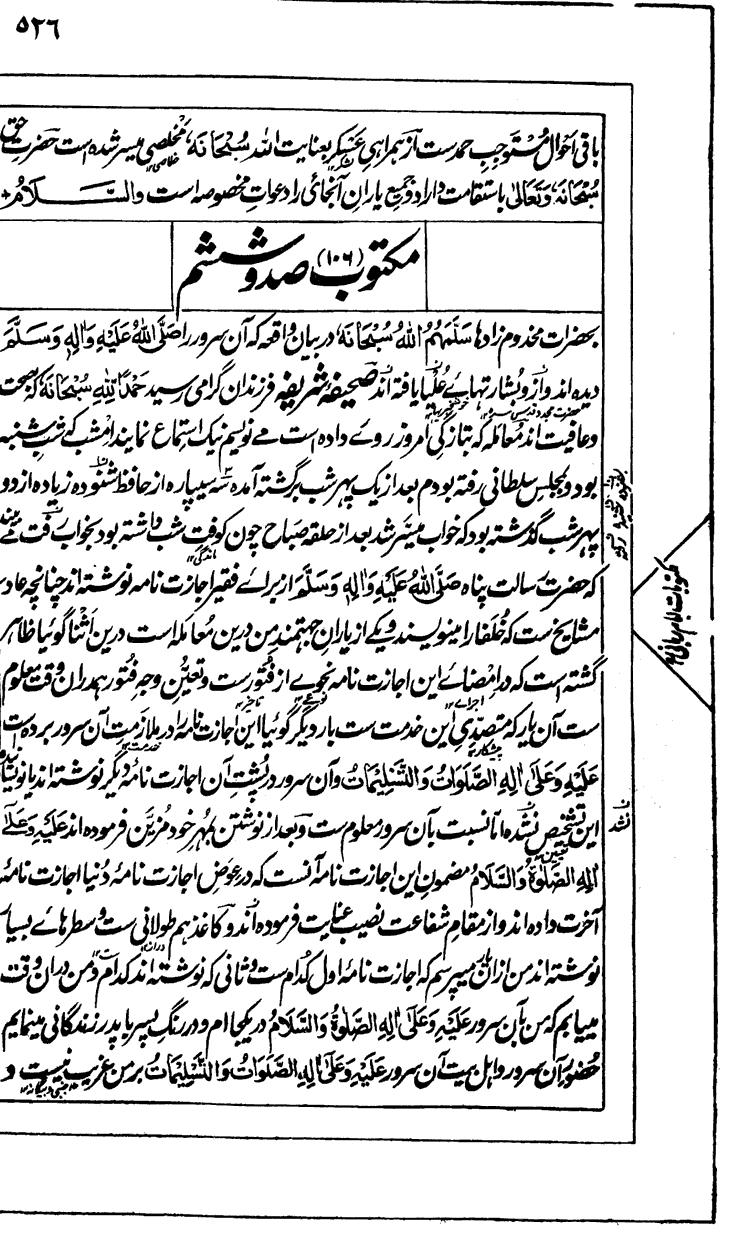 ٥٢٦
باقی احوال مستوجب حمدست از همراهیِ عسکر بعنایت الله سُبْحَانَهٗ مخلصی میسر شده است حضرت حق
سُبْحَانَهٗ وَتَعَالٰی باستقامت دارد و جمیع یاران آنجائی را دعوات مخصوصه است والسَّـلَامُ
مکتوب صد و ششم (١٠٦)
بحضرات مخدوم زادها سَلَّمَهُمُ اللّٰهُ سُبْحَانَهٗ در بیان واقعه که آن سرور را صَلَّی اللّٰهُ عَلَیْهِ وَاٰلِهٖ وَسَلَّمَ
دیده اند و ازو بشارتهائے عُلیا یافته اند صحیفۀ شریفۀ فرزندان گرامی رسید حَمْدًا لِلّٰهِ سُبْحَانَهٗ که بصحت
و عافیت اند معامله که بتازگی امروز روے داده است مے نویسم نیک استماع نمایند امشب که شب شنبه
بود و بمجلس سلطانی رفته بودم بعد از یک پهر شب برگشته آمده سه سیپاره از حافظ شنوده زیاده از دو
پهر شب گذشته بود که خواب میسر شد بعد از حلقۀ صباح چون کوفت شب داشته بود بخواب رفت مے بیند
که حضرت رسالت پناه صَلَّی اللّٰهُ عَلَیْهِ وَاٰلِهٖ وَسَلَّمَ از براے فقیر اجازت نامه نوشته اند چنانچه عادت
مشایخ ست که خُلَفا را مینویسند و یکے از یاران جهتمند من درین معامله است درین اَثنا گوئیا ظاهر
گشته است که در اِمضائے این اجازت نامه نحوے از فتورست و تعیّن وجه فتور همدران وقت معلوم
ست آن یار که متصدّی این خدمت ست بار دیگر گوئیا این اجازت نامه را در ملازمت آن سرور برده است
عَلَیْهِ وَعَلٰی اٰلِهِ الصَّلَوَاتُ وَالتَّسْلِیْمَاتُ و آن سرور در پشت آن اجازت نامۀ دیگر نوشته اند یا نویسانیده
این تشخیص نشده امّا نسبت بآن سرور معلوم ست و بعد از نوشتن بمُهر خود مُزیّن فرموده اند عَلَیْهِ وَعَلٰی
اٰلِهِ الصَّلٰوةُ وَالسَّلَامُ مضمون این اجازت نامه آنست که در عوض اجازت نامۀ دُنیا اجازت نامۀ
آخرت داده اند و از مقام شفاعت نصیب عنایت فرموده اند و کاغذ هم طولانی ست و سطرهائے بسیار
نوشته اند من ازان یار میپرسم که اجازت نامۀ اول کدام ست و ثانی که نوشته اند کدام و من دران وقت
مییابم که من بآن سرور عَلَیْهِ وَعَلٰی اٰلِهِ الصَّلٰوةُ وَالسَّلَامُ در یکجا ام و در رنگ پسر با پدر زندگانی مینمایم
حضور آن سرور و اهل بیت آن سرور عَلَیْهِ وَعَلٰی اٰلِهِ الصَّلَوَاتُ وَالتَّسْلِیْمَاتُ بر من غریب نیست و
مکتوبات امام ربانی
نشد